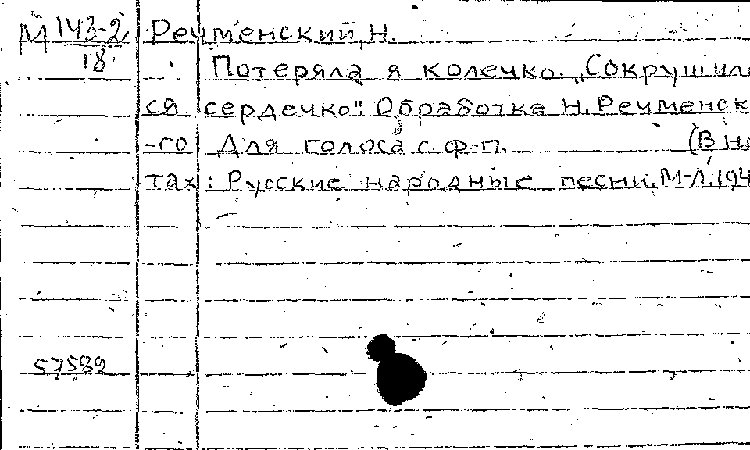 М 143-2 Речменский, Н.
18 Потеряла я колечко. „Сокрушил
ся сердечко". Обработка Н. Речменск
-го Для голоса с ф-п. (В но
тах: Русские народные песни. М-Л. 194
57599